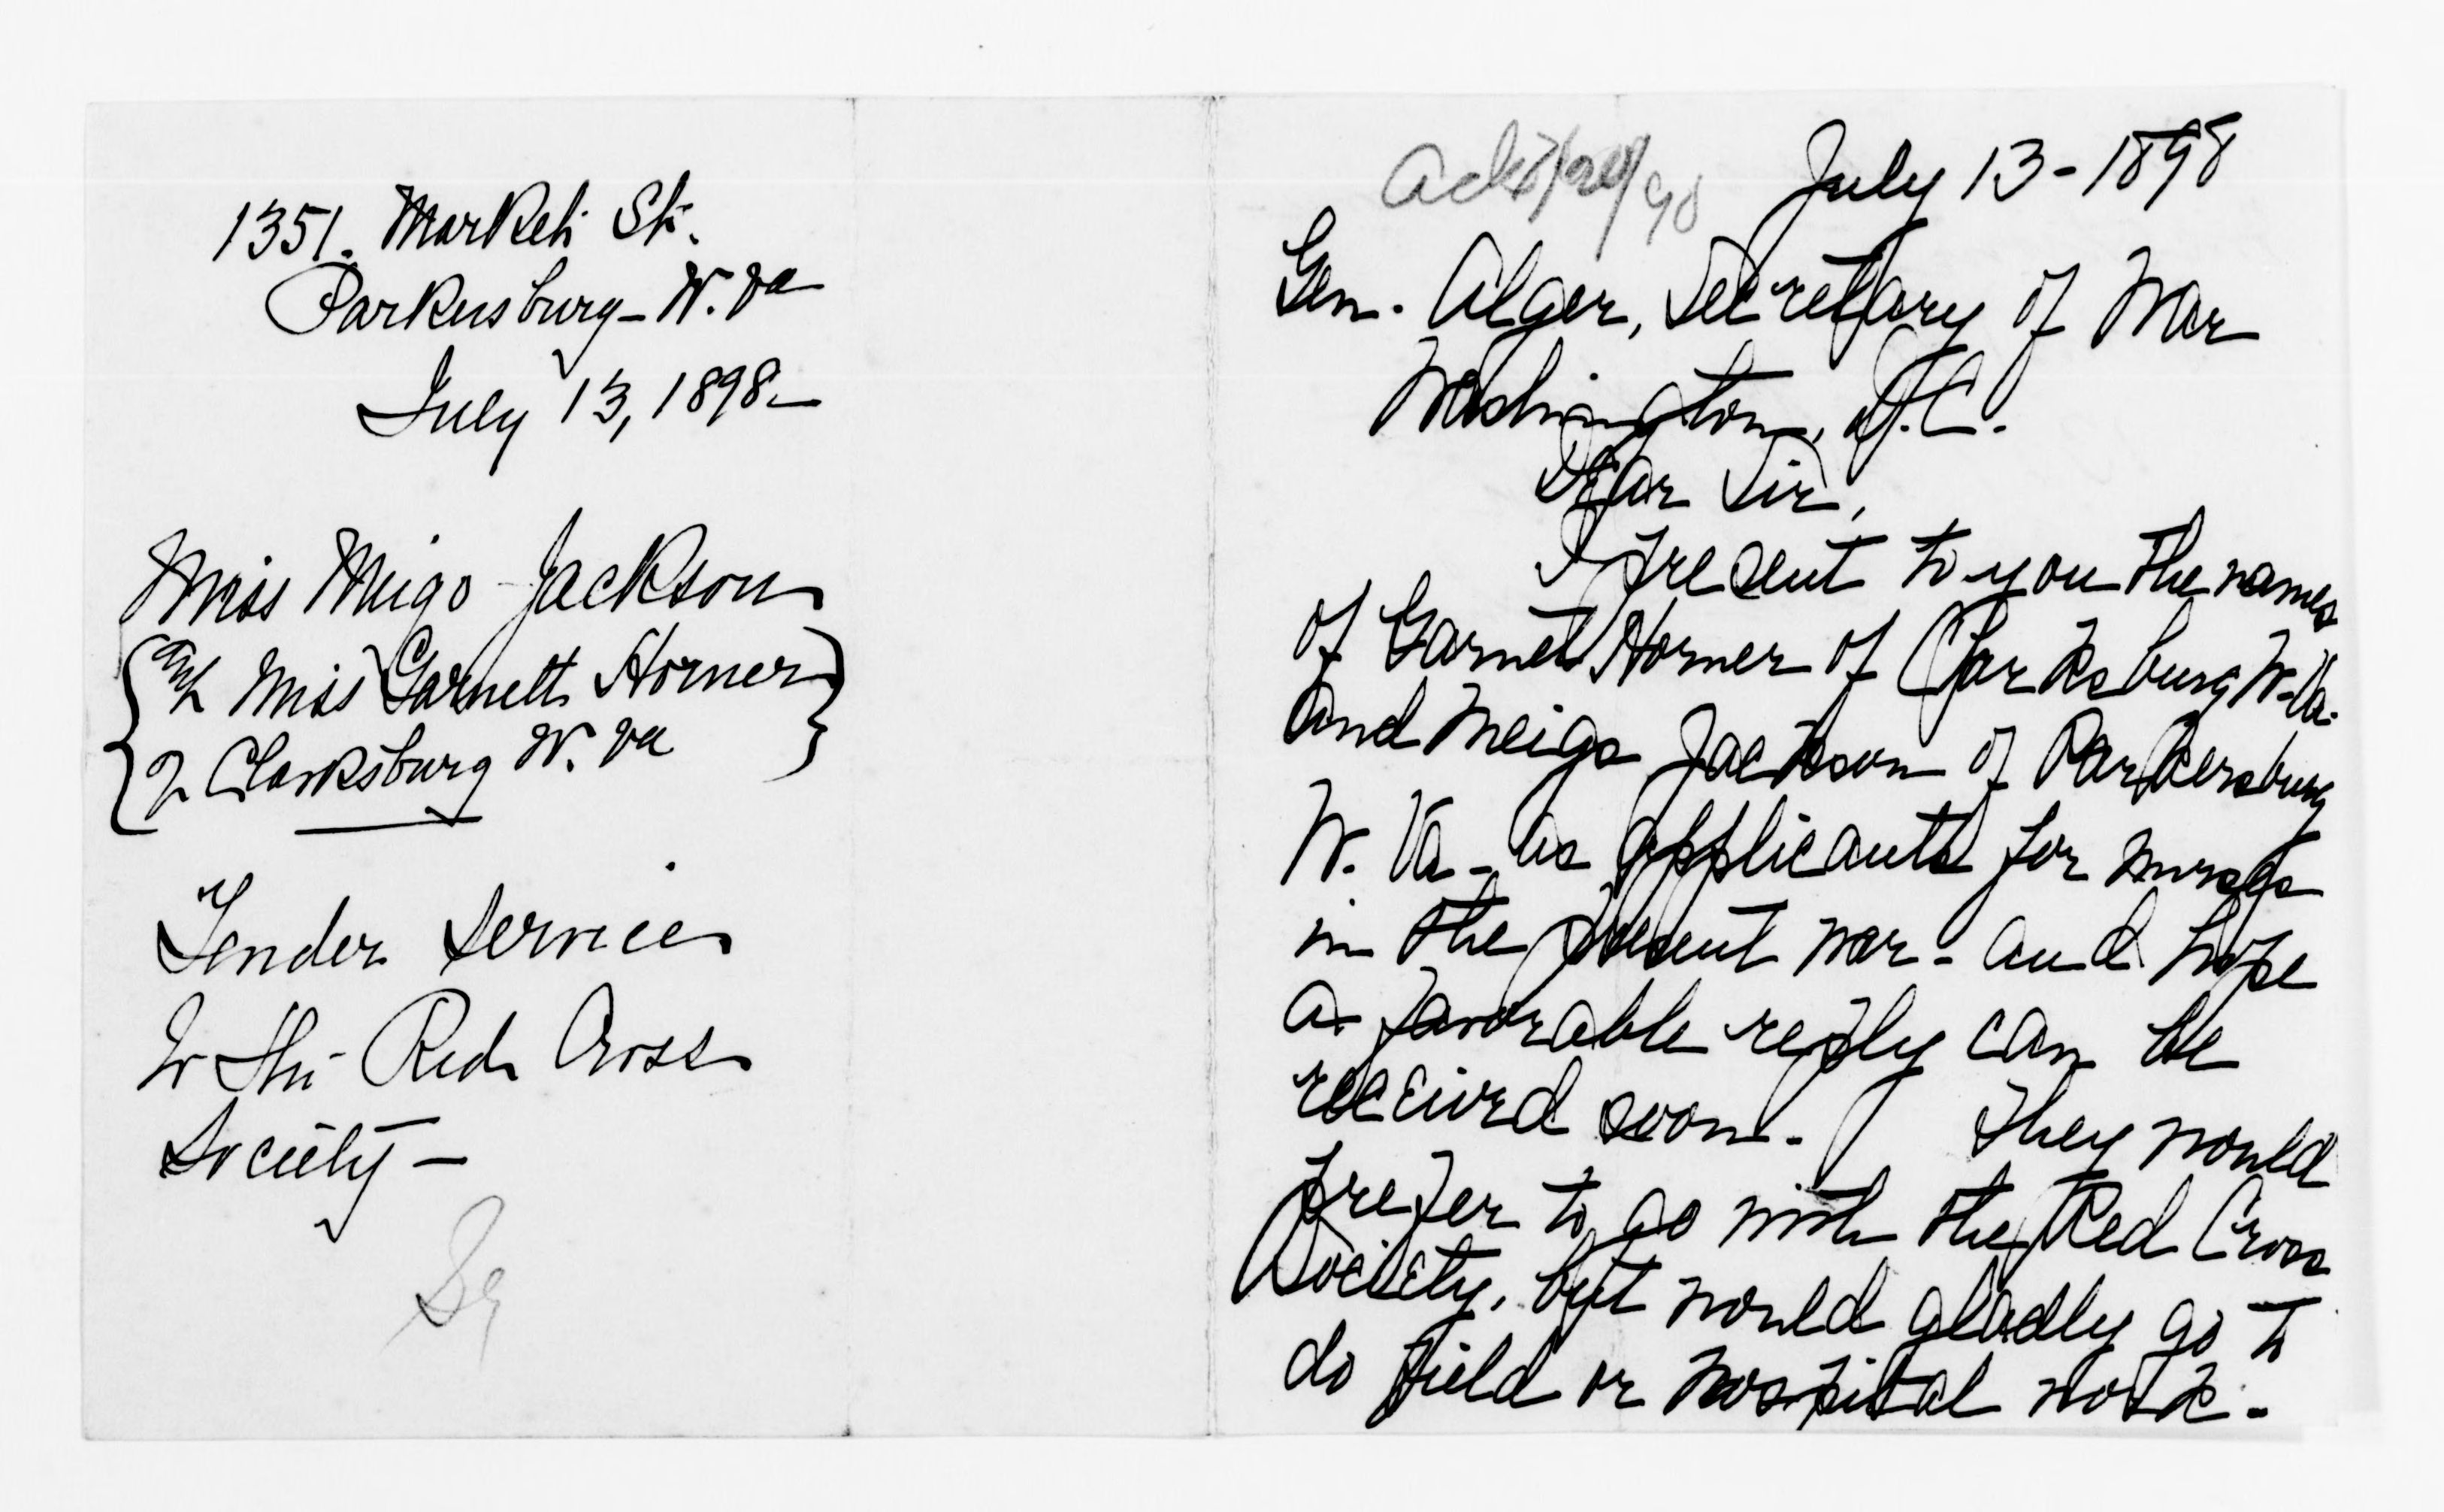 1351. Market St.
Parkersburg - W. Va
July 13, 1898 -
Miss Meigs Jackson
and Miss Garnett Horner
of Clarksburg W. Va
Tender Services
to the Red Cross
Society -
July 13 - 1898
Gen. Alger, Secretary of War
Washington, D.C.
Dear Sir,
I present to you the names
of Garnett Horner of Clarksburg W. Va.
and Meigs Jackson of Parkersburg
W. Va - as applicants for nurses
in the present war - and hope
a favorable reply can be
received soon. They would
prefer to go with the Red Cross
Society, but would gladly go to
do field or hospital work.